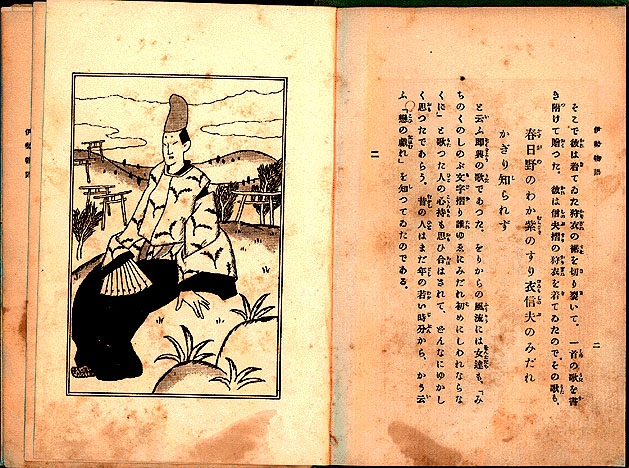 伊勢物語
二
そこで彼は着てゐた狩衣の裾を切り裂いて。一首の歌を書
き附けて贈つた。彼は信夫摺の狩衣を着てゐたのでその歌も、
春日野のわか紫のすり衣信夫のみだれ
かぎり知られず
と云ふ即興の歌であつた。をりからの風流には女達も、「み
ちのくのしのぶ文字摺り誰ゆゑにみだれ初めにしわれならな
くに」と歌つた人の心持も思ひ合はされて、どんなにゆかし
く思つたであらう。昔の人はまだ年の若い時分から、かう云
ふ「戀の戯れ」を知つてゐたのである。
二
伊勢物語